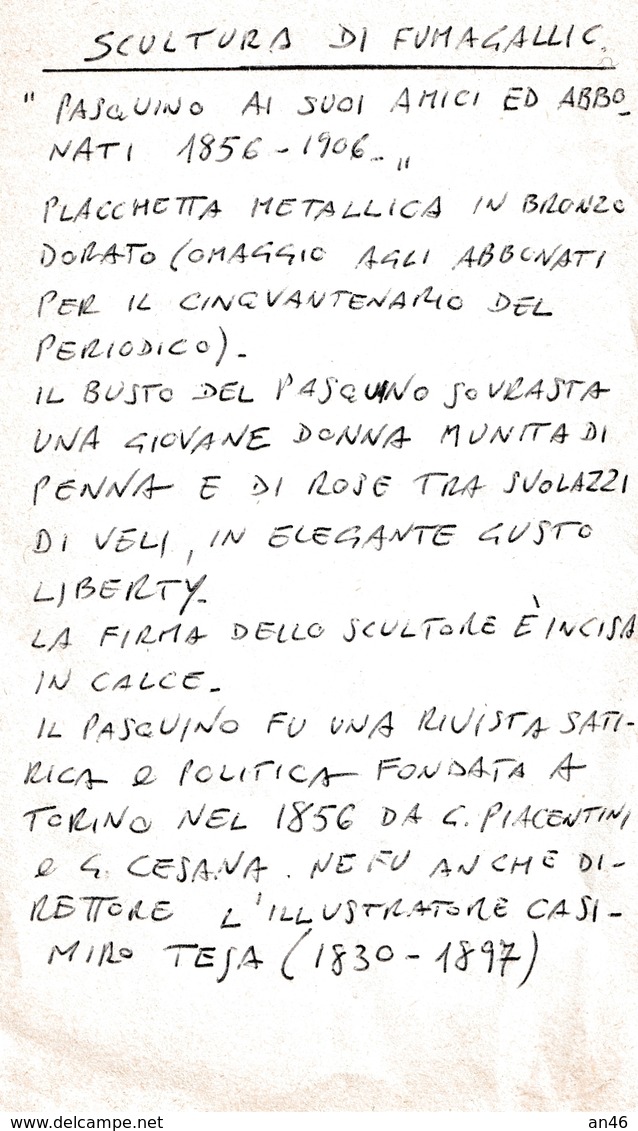 SCULTURA DI FUMAGALLI C.
" PASQUINO AI SUOI AMICI ED ABBO-
NATI 1856 - 1906 - "
PLACCHETTA METALLICA IN BRONZO
DORATO (OMAGGIO AGLI ABBONATI
PER IL CINQVANTENARIO DEL
PERIODICO) -
IL BUSTO DEL PASQUINO SOVRASTA
UNA GIOVANE DONNA MUNITA DI
PENNA E DI ROSE TRA SVOLAZZI
DI VELI, IN ELEGANTE GUSTO
LIBERTY -
LA FIRMA DELLO SCULTORE È INCISA
IN CALCE -
IL PASQUINO FU UNA RIVISTA SATI-
RICA e POLITICA FONDATA A
TORINO NEL 1856 DA G. PIACENTINI
e G. CESANA. NE FU ANCHE DI-
RETTORE L'ILLUSTRATORE CASI-
MIRO TEJA (1830 - 1897)
www.delcampe.net
an46